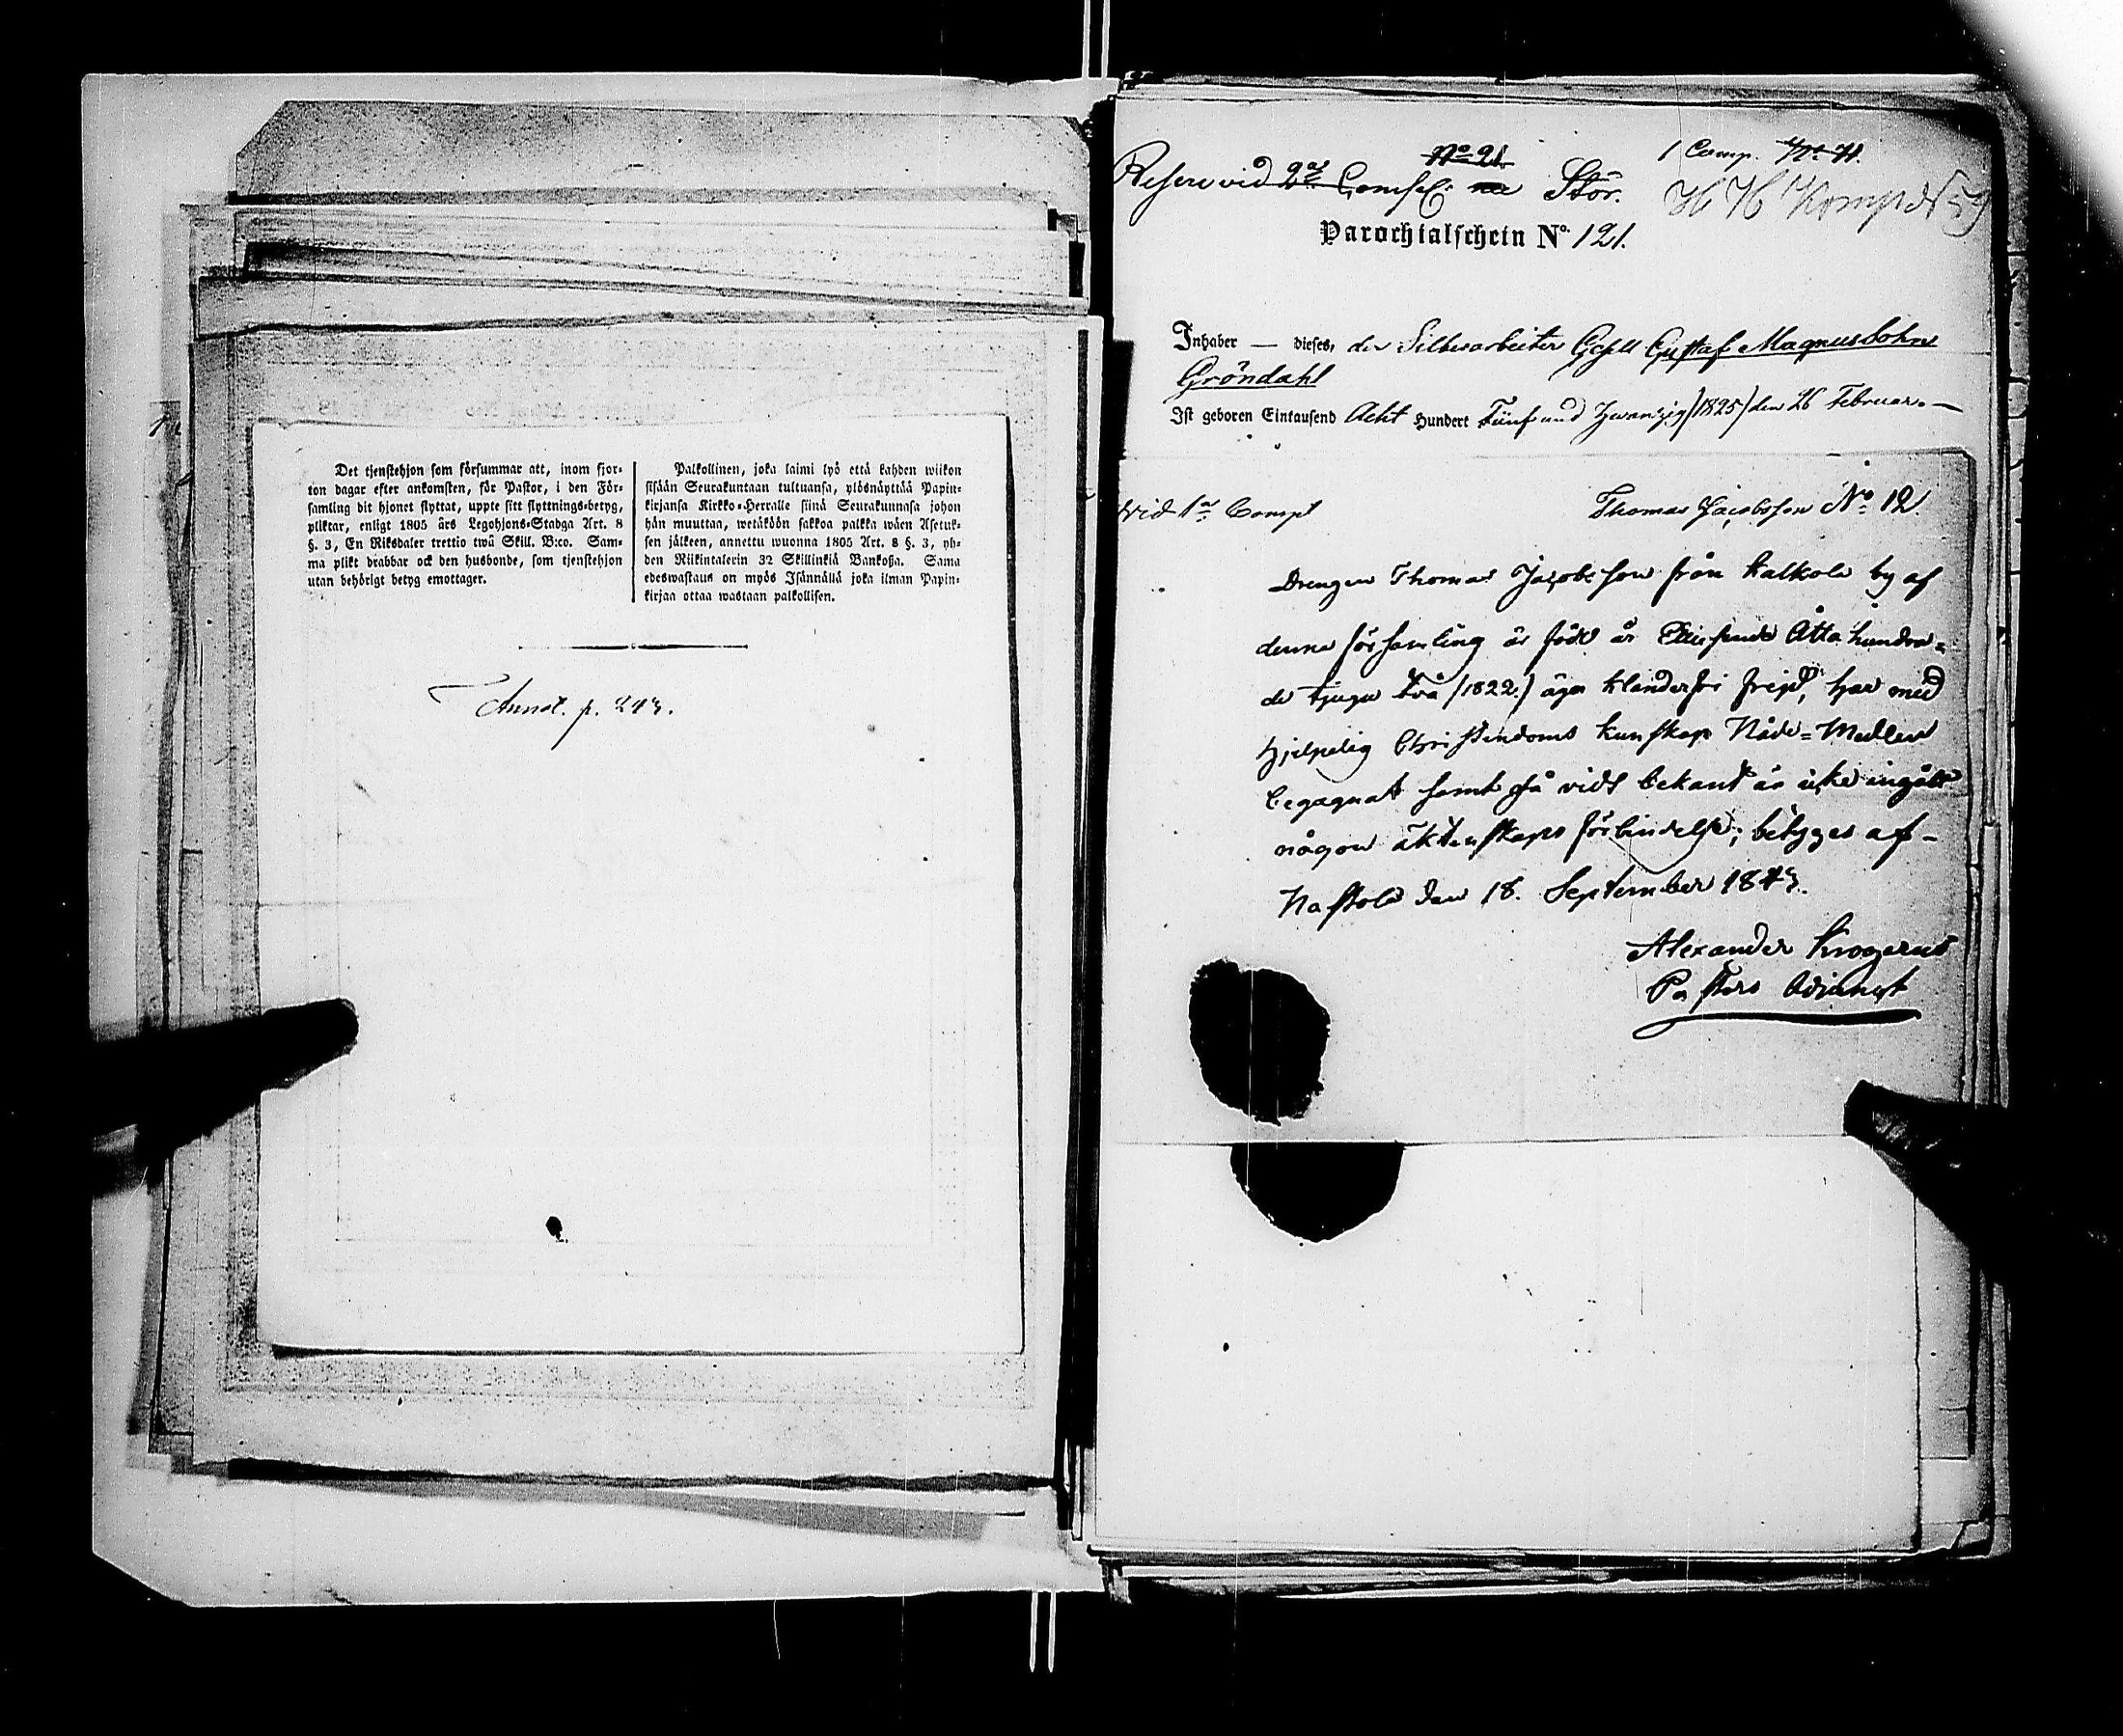 Det tjenstehjon som försummar att, inom fjor-
ton dagar efter ankomsten, för Pastor, i den För-
samling dit hjonet flyttat, uppte sitt flyttnings-betyg,
pliktar, enligt 1805 års Legohjons-Stadga Art. 8
§. 3, En Riksdaler trettio twå Skill. B:co. Sam-
ma plikt drabbar ock den husbonde, som tjenstehjon
utan behörigt betyg emottager.
Palkollinen, joka laimi lyö että kahden wiikon
sisään Seurakuntaan tultuansa, ylösnäyttää Papin-
kirjansa Kirkko-Herralle siinä Seurakunnasa johon
hän muuttaa, wetäköön sakkoa palkka wäen Asetuk-
sen jälkeen, annettu wuonna 1805 Art. 8 §. 3, yh-
den Riikintalerin 32 Skillinkiä Bankoßa. Sama
edeswastaus on myös Isännällä joka ilman Papin-
kirjaa ottaa wastaan palkollisen.
Annot. p. 243.
No 21
1 Comp. No 71.
Reserv vid 2a Comp. Stör.
Komp
Parochialschein No. 121.
Inhaber — dieses, der Silberarbeiter Gesell Gustaf Magnus Sohn
Gröndahl
Ist geboren Eintausend Acht Hundert Fünf und Zwanzig (1825) den 26 Februar. —
vid 1a Comp
Thomas Jacobsson No 12.
Drengen Thomas Jacobsson från Kalkola by af
denna församling är född år Ettusende Åtta hundra-
de tjugu två (1822.) äger klanderfri frejd, har med
hjelpelig Christendoms kunskap Nåde-Medlen
begagnat samt så vidt bekant är icke ingått
någon äktenskaps förbindelse; betyges af -
Nastola den 18. September 1843.
Alexander Krogerus
Pastors Adjunct